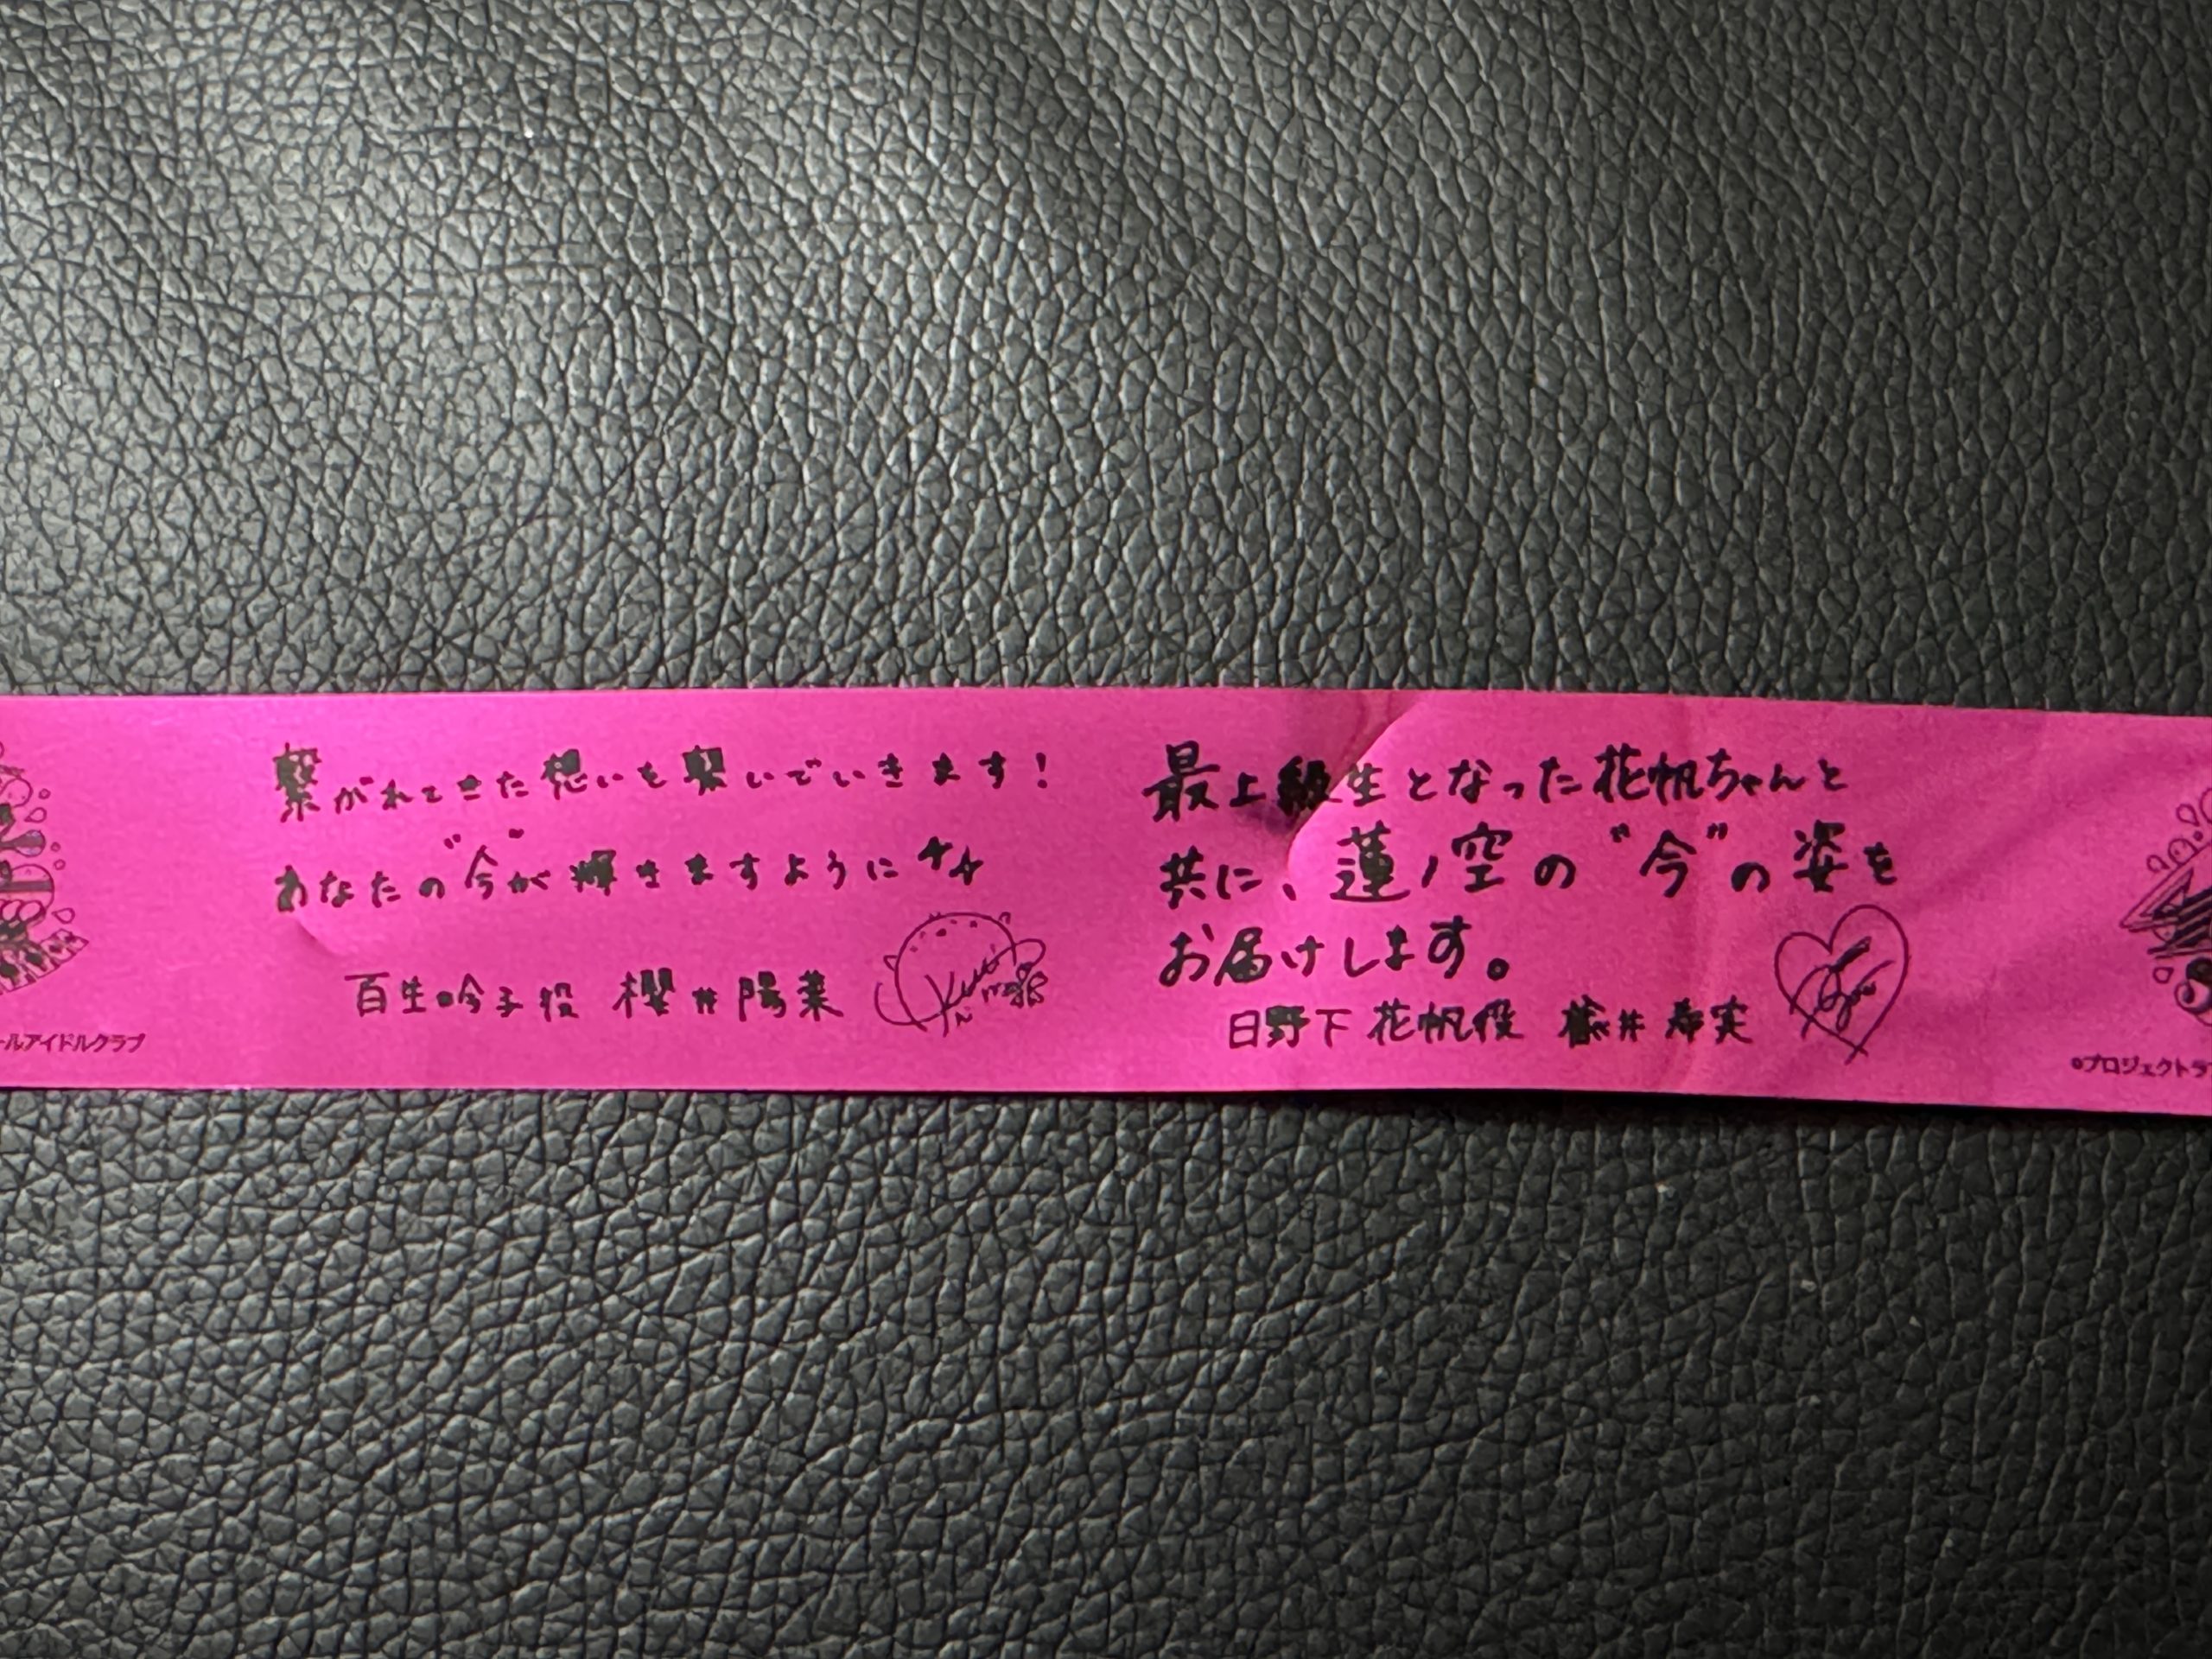 繋がれてきた想いを繋いでいきます！
あなたの"今"が輝きますように☆☆
百生吟子役 櫻井陽菜
ールアイドルクラブ
最上級生となった花帆ちゃんと
共に、蓮ノ空の"今"の姿を
お届けします。
日野下花帆役 楡井希実
©プロジェクトラ